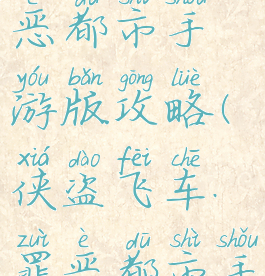 è dū shì shǒu
恶都市手
yóu bǎn gōng lüè
游版攻略(
xiá dào fēi chē
侠盗飞车.
zuì è dū shì shǒu
罪恶都市手